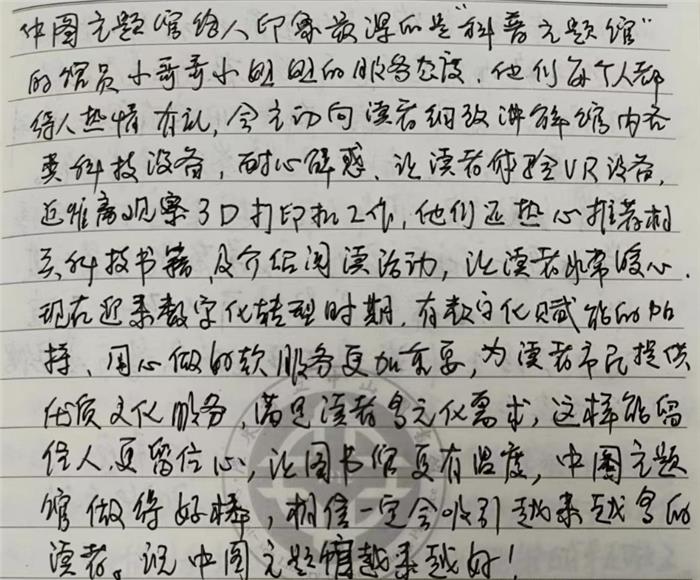 中图主题馆给人印象最深的是“科普主题馆”
的馆员小哥哥小姐姐的服务态度，他们每个人都
待人热情有礼，会主动向读者细致讲解馆内各
类科技设备，耐心解惑、让读者体验VR设备，
近距离观察3D打印机工作，他们还热心推荐相
关科技书籍，及介绍阅读活动，让读者非常暖心。
现在迎来数字化转型时期，有数字化赋能的加
持、用心做好软服务更加重要，为读者市民提供
优质文化服务，满足读者多元化需求，这样能留
住人更留住心，让图书馆更有温度，中图主题
馆做得好棒，相信一定会吸引越来越多的
读者。祝中图主题馆越来越好！